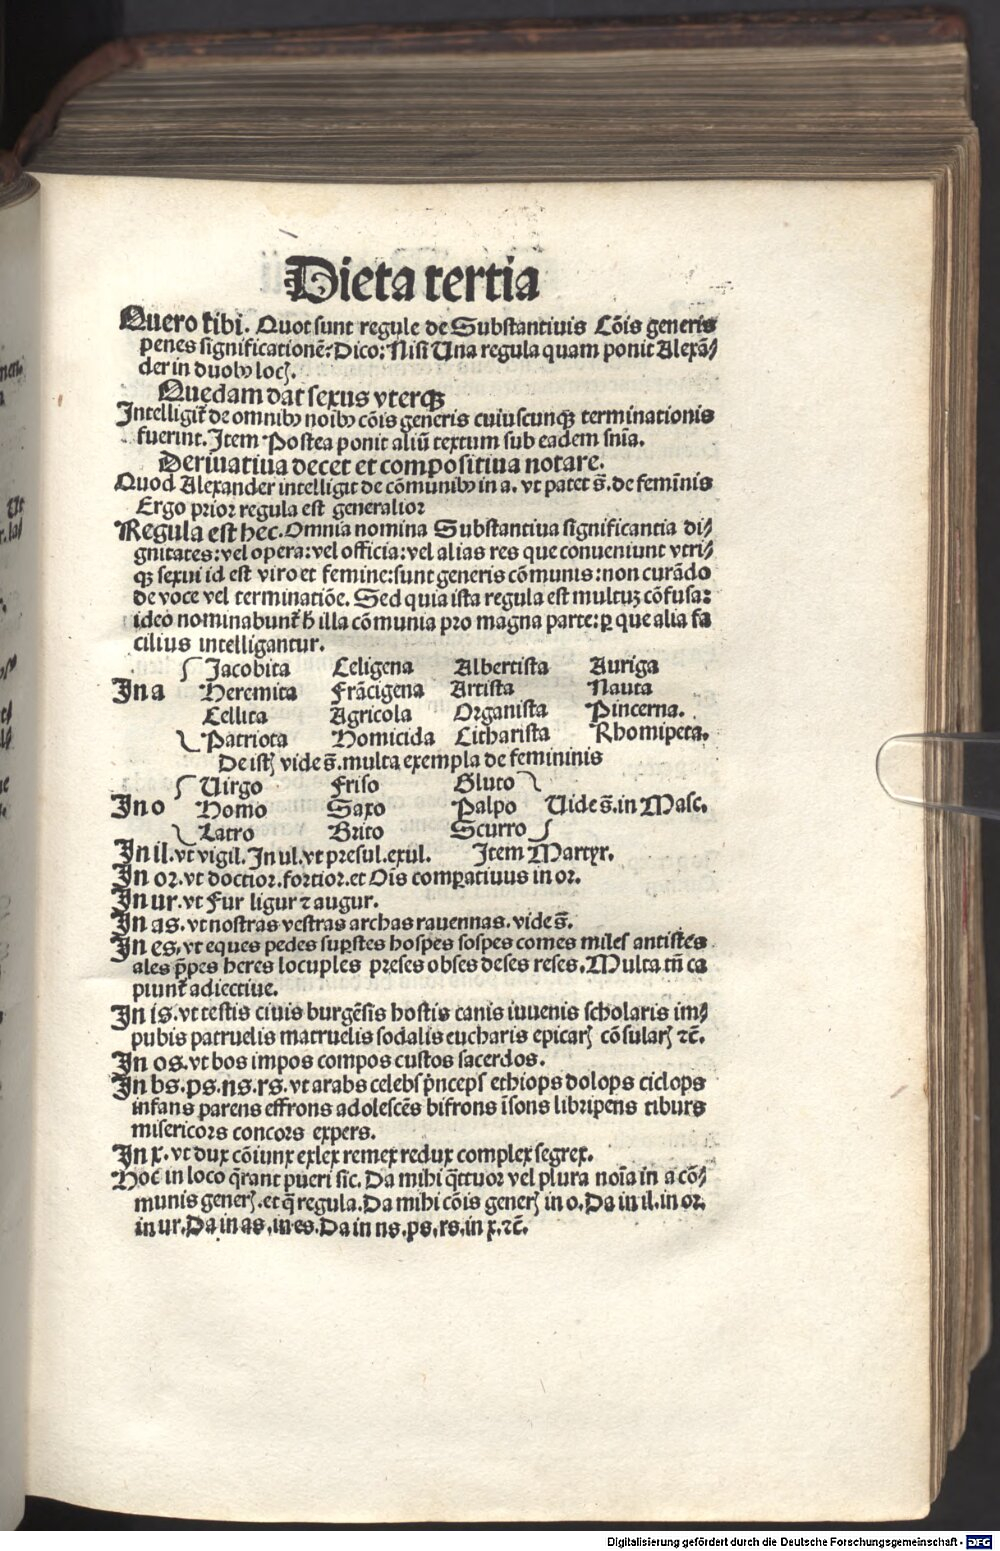 Dieta tertia
Quero tibi. Quot sunt regule de Substantiuis Cōis generis
penes significationē: Dico: Nisi Una regula quam ponit Alexā⸗
der in duobꝰ locꝭ.
Quedam dat sexus vterqꝫ
Intelligit̄ de omnibꝰ noībꝰ cōis generis cuiuscunqꝫ terminationis
fuerint. Item Postea ponit aliū textum sub eadem snīa.
Deriuatiua decet et compositiua notare.
Quod Alexander intelligit de cōmunibꝰ in a. vt patet s̄. de femīnis
Ergo prior regula est generalior
Regula est hec. Omnia nomina Substantiua significantia di⸗
gnitates: vel opera: vel officia: vel alias res que conueniunt vtri⸗
qꝫ sexui id est viro et femine: sunt generis cōmunis: non curādo
de voce vel terminatiōe. Sed quia ista regula est multuꝫ cōfusa:
ideo nominabunt̄ h̄ illa cōmunia pro magna parte: ꝑ que alia fa
cilius intelligantur.
Jacobita Celigena Albertista Auriga
In a Heremita Frācigena Artista Nauta
Cellita Agricola Organista Pincerna.
Patriota Homicida Citharista Rhomipeta.
De istꝭ vide s̄. multa exempla de femininis
Uirgo Friso Gluto
In o Homo Saxo Palpo Uide s̄. in Masc.
Latro Brito Scurro
In il. vt vigil. In ul. vt presul. exul. Item Martyr.
In or. vt doctior. fortior. et Ois comꝑatiuus in or.
In ur. vt Fur ligur ⁊ augur.
In as. vt nostras vestras archas rauennas. vide s̄.
In es. vt eques pedes suꝑstes hospes sospes comes miles antistes
ales p̄pes heres locuples preses obses deses reses. Multa tn̄ ca
piunt̄ adiectiue.
In is. vt testis ciuis burgēsis hostis canis iuuenis scholaris im⸗
pubis patruelis matruelis sodalis eucharis epicarꝭ cōsularꝭ ⁊c̄.
In os. vt bos impos compos custos sacerdos.
In bs. ps. ns. rs. vt arabs celebs p̄nceps ethiops dolops ciclops
infans parens effrons adolescēs bifrons īsons libripens tiburs
misericors concors expers.
In x. vt dux cōiunx exlex remex redux complex segrex.
Hoc in loco q̄rant pueri sic. Da mihi q̄ttuor vel plura noīa in a cō⸗
munis generꝭ. et q̄ regula. Da mihi cōis generꝭ in o. Da in il. in or.
in ur. Da in as. in es. Da in ns. ps. rs. in x. ⁊c̄.
Digitalisierung gefördert durch die Deutsche Forschungsgemeinschaft - DFG